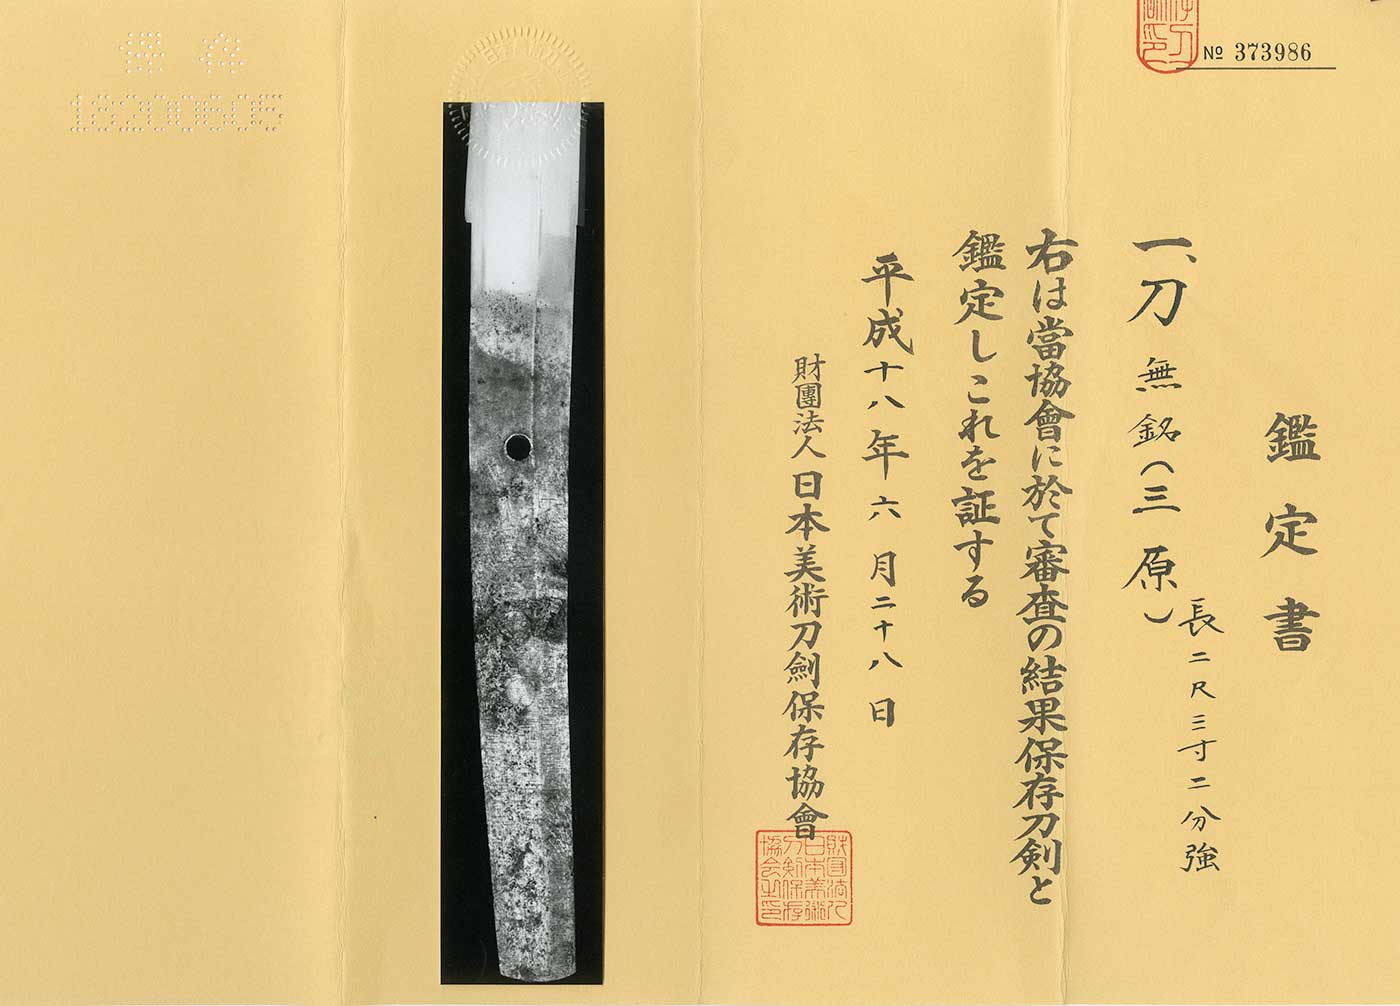 № 373986
鑑定書
一、刀 無銘(三原)
長二尺三寸二分強
右は當協會に於て審査の結果保存刀剣と
鑑定しこれを証する
平成十八年六月二十八日
財團法人 日本美術刀劍保存協會
財団法人
日本美術
刀剣保存
協会之印
保存
16200605